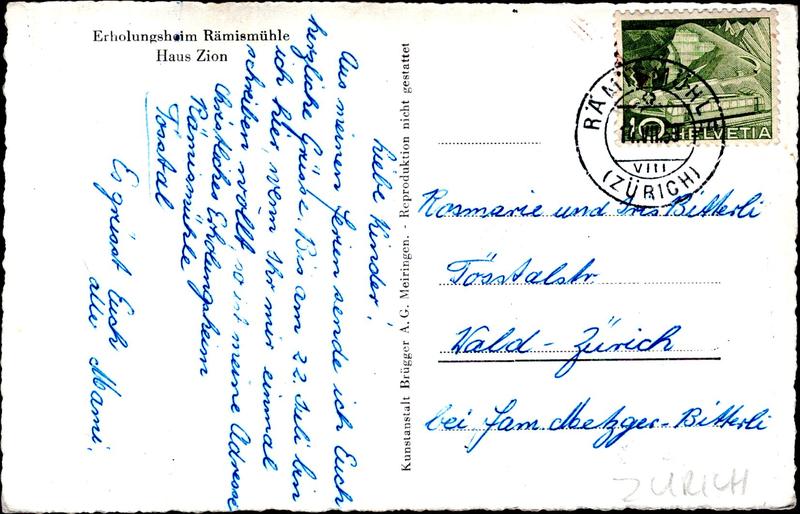 Erholungsheim Rämismühle
Haus Zion
Liebe Kinder!
Aus meinen Ferien sende ich Euch
herzliche Grüsse. Bis am 22. Juli bin
ich hier, wenn Ihr mir einmal
schreiben wollt, so ist meine Adresse
Christliches Erholungsheim
Rämismühle
Tösstal
Es grüsst Euch
alle Mami.
Kunstanstalt Brügger A. G. Meiringen. - Reproduktion nicht gestattet
RÄMISMÜHLE
VII.
VIII
(ZÜRICH)
10 HELVETIA
Rosmarie und Iris Bitterli
Tösstalstr
Wald - Zürich
bei Fam Metzger-Bitterli
ZÜRICH